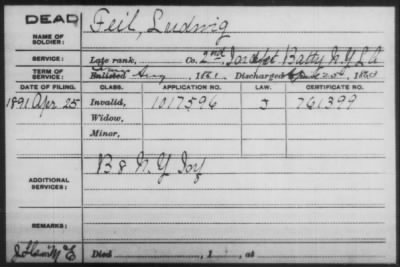 DEAD
NAME OF SOLDIER:
Feil, Ludwig
SERVICE:
Late rank, Co. 2nd Indpt Batty N.Y.L.A
TERM OF SERVICE:
Enlisted Aug 1861 Discharged
DATE OF FILING. CLASS. APPLICATION NO. LAW. CERTIFICATE NO.
1891 Apr 25 Invalid, 1017596 J 761399
Widow,
Minor,
ADDITIONAL SERVICES:
B 8 N.Y. Inf
REMARKS:
Died , 1 , at